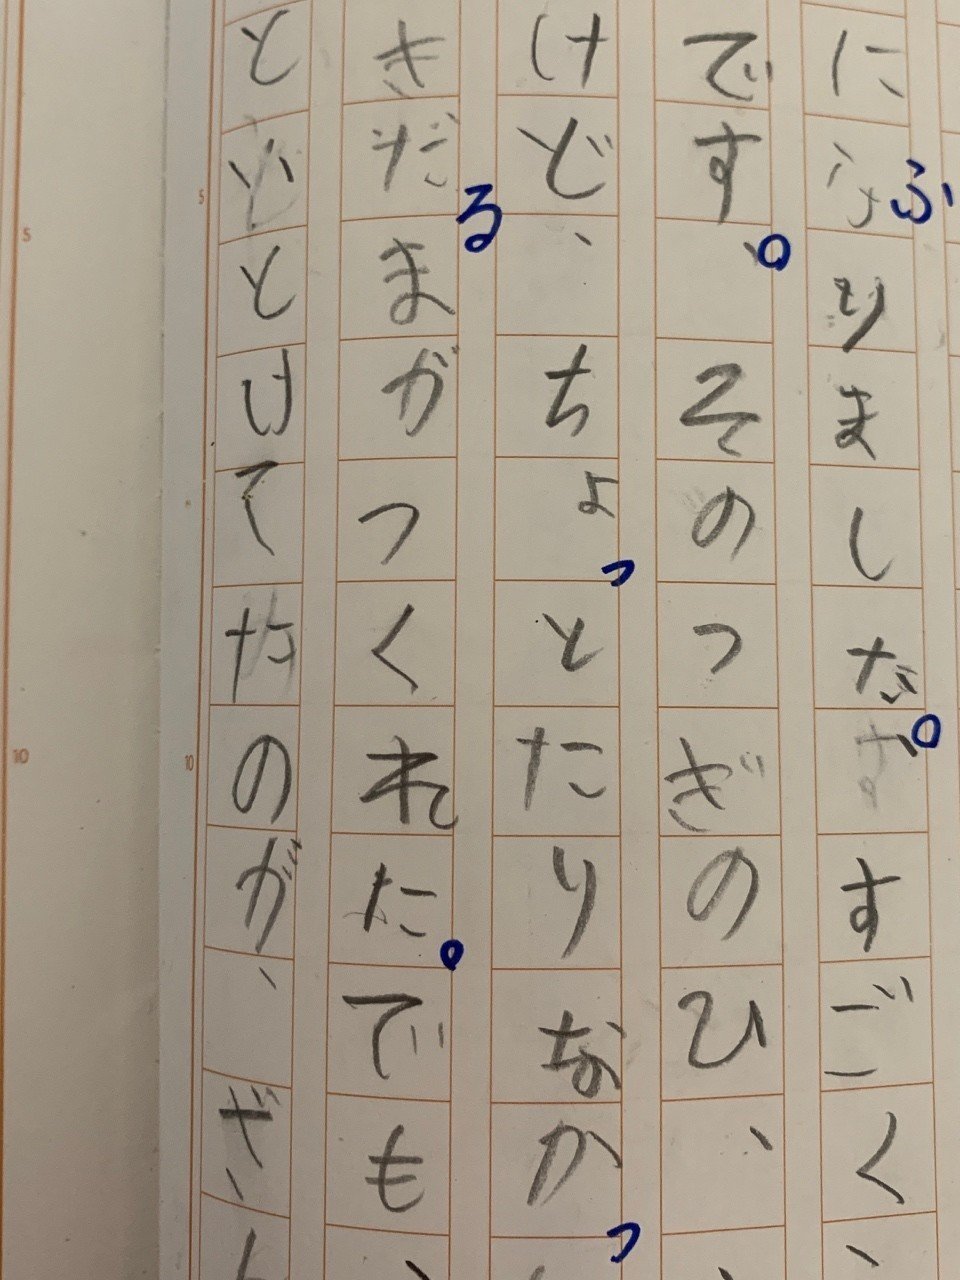 にふりました。すごく
です。そのつぎのひ、
けど、ちょっとたりなかっ
きだるまがつくれた。でも
といとけてたのが、ざ
5
10
5
10